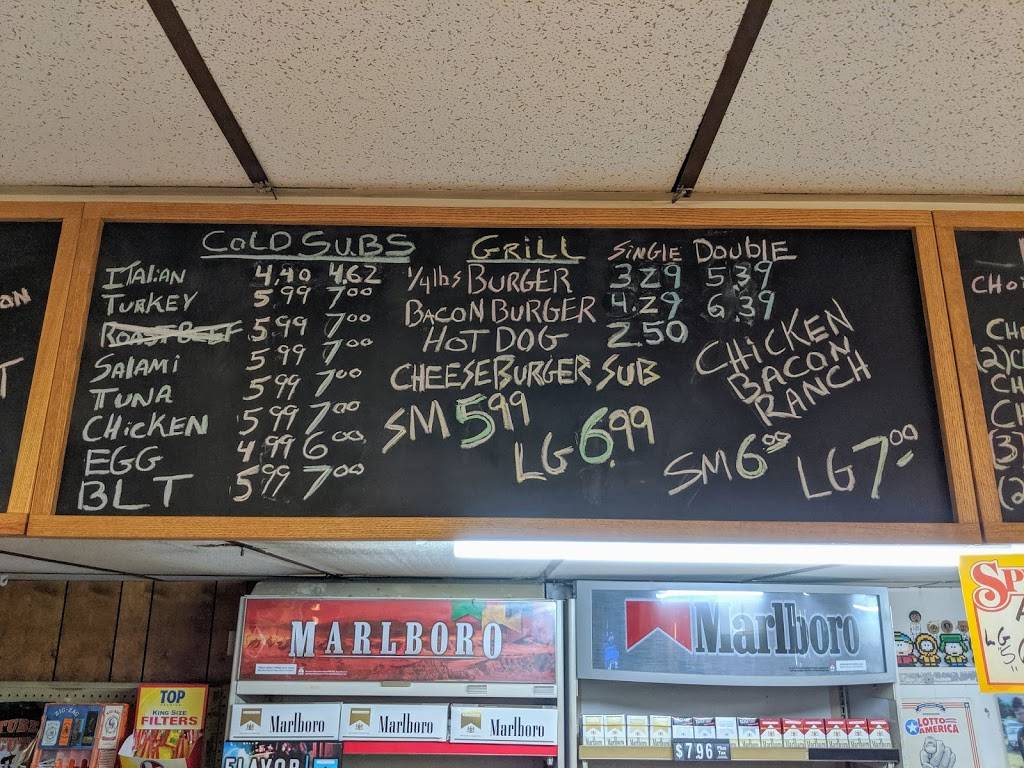 COLD SUBS
ITALIAN 4.40 4.62
TURKEY 5.99 7.00
ROAST BEEF 5.99 7.00
SALAMI 5.99 7.00
TUNA 5.99 7.00
CHICKEN 5.99 7.00
EGG 4.99 6.00
BLT 5.99 7.00
GRILL SINGLE DOUBLE
1/4 lbs BURGER 3.29 5.39
BACON BURGER 4.29 6.39
HOT DOG 2.50
CHEESEBURGER SUB
SM 5.99
LG 6.99
CHICKEN
BACON
RANCH
SM 6.00 LG 7.00
CHO
CH
(2)C
CH
CH
(3)
(2
MARLBORO
Marlboro
Marlboro
Marlboro
Marlboro
$7.96
ZIG-ZAG
TOP
KING SIZE
FILTERS
FLAVOR
LOTTO
AMERICA
SP
LG